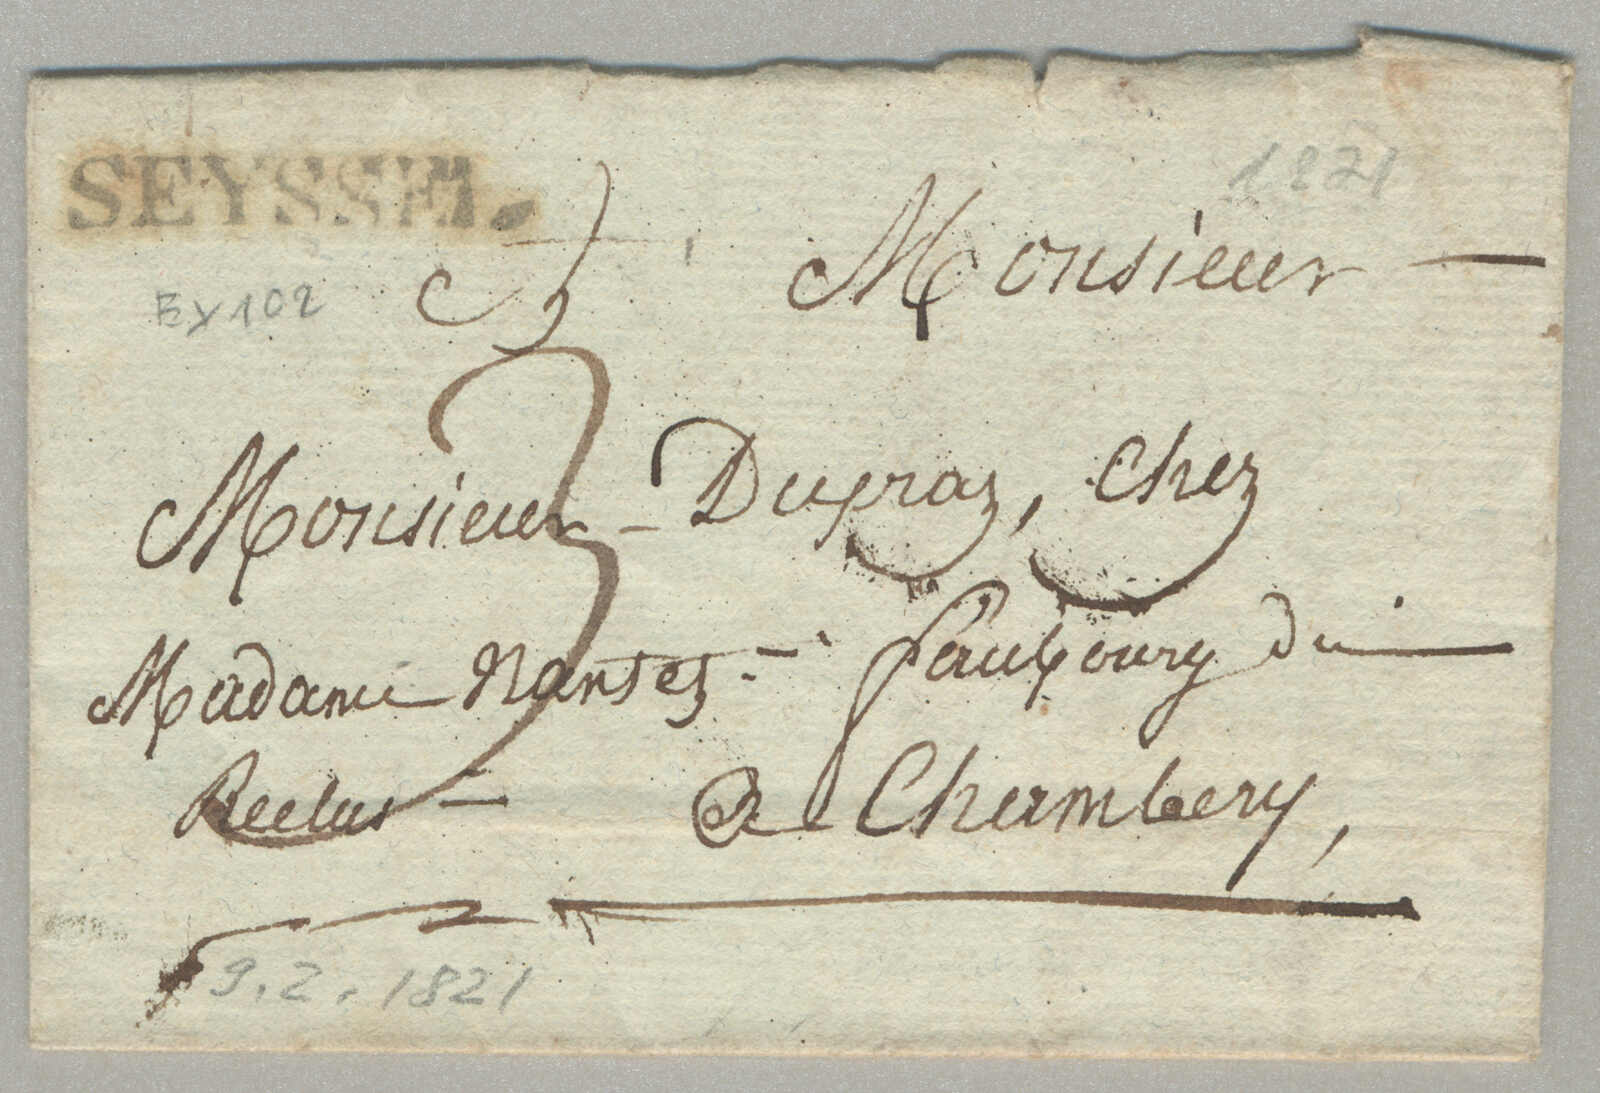 SEYSSEL.
1821
Ey 102
Monsieur
3
Monsieur Dupraz, chez
Madame faubourg du
Reclus a Chambery,
9.2.1821